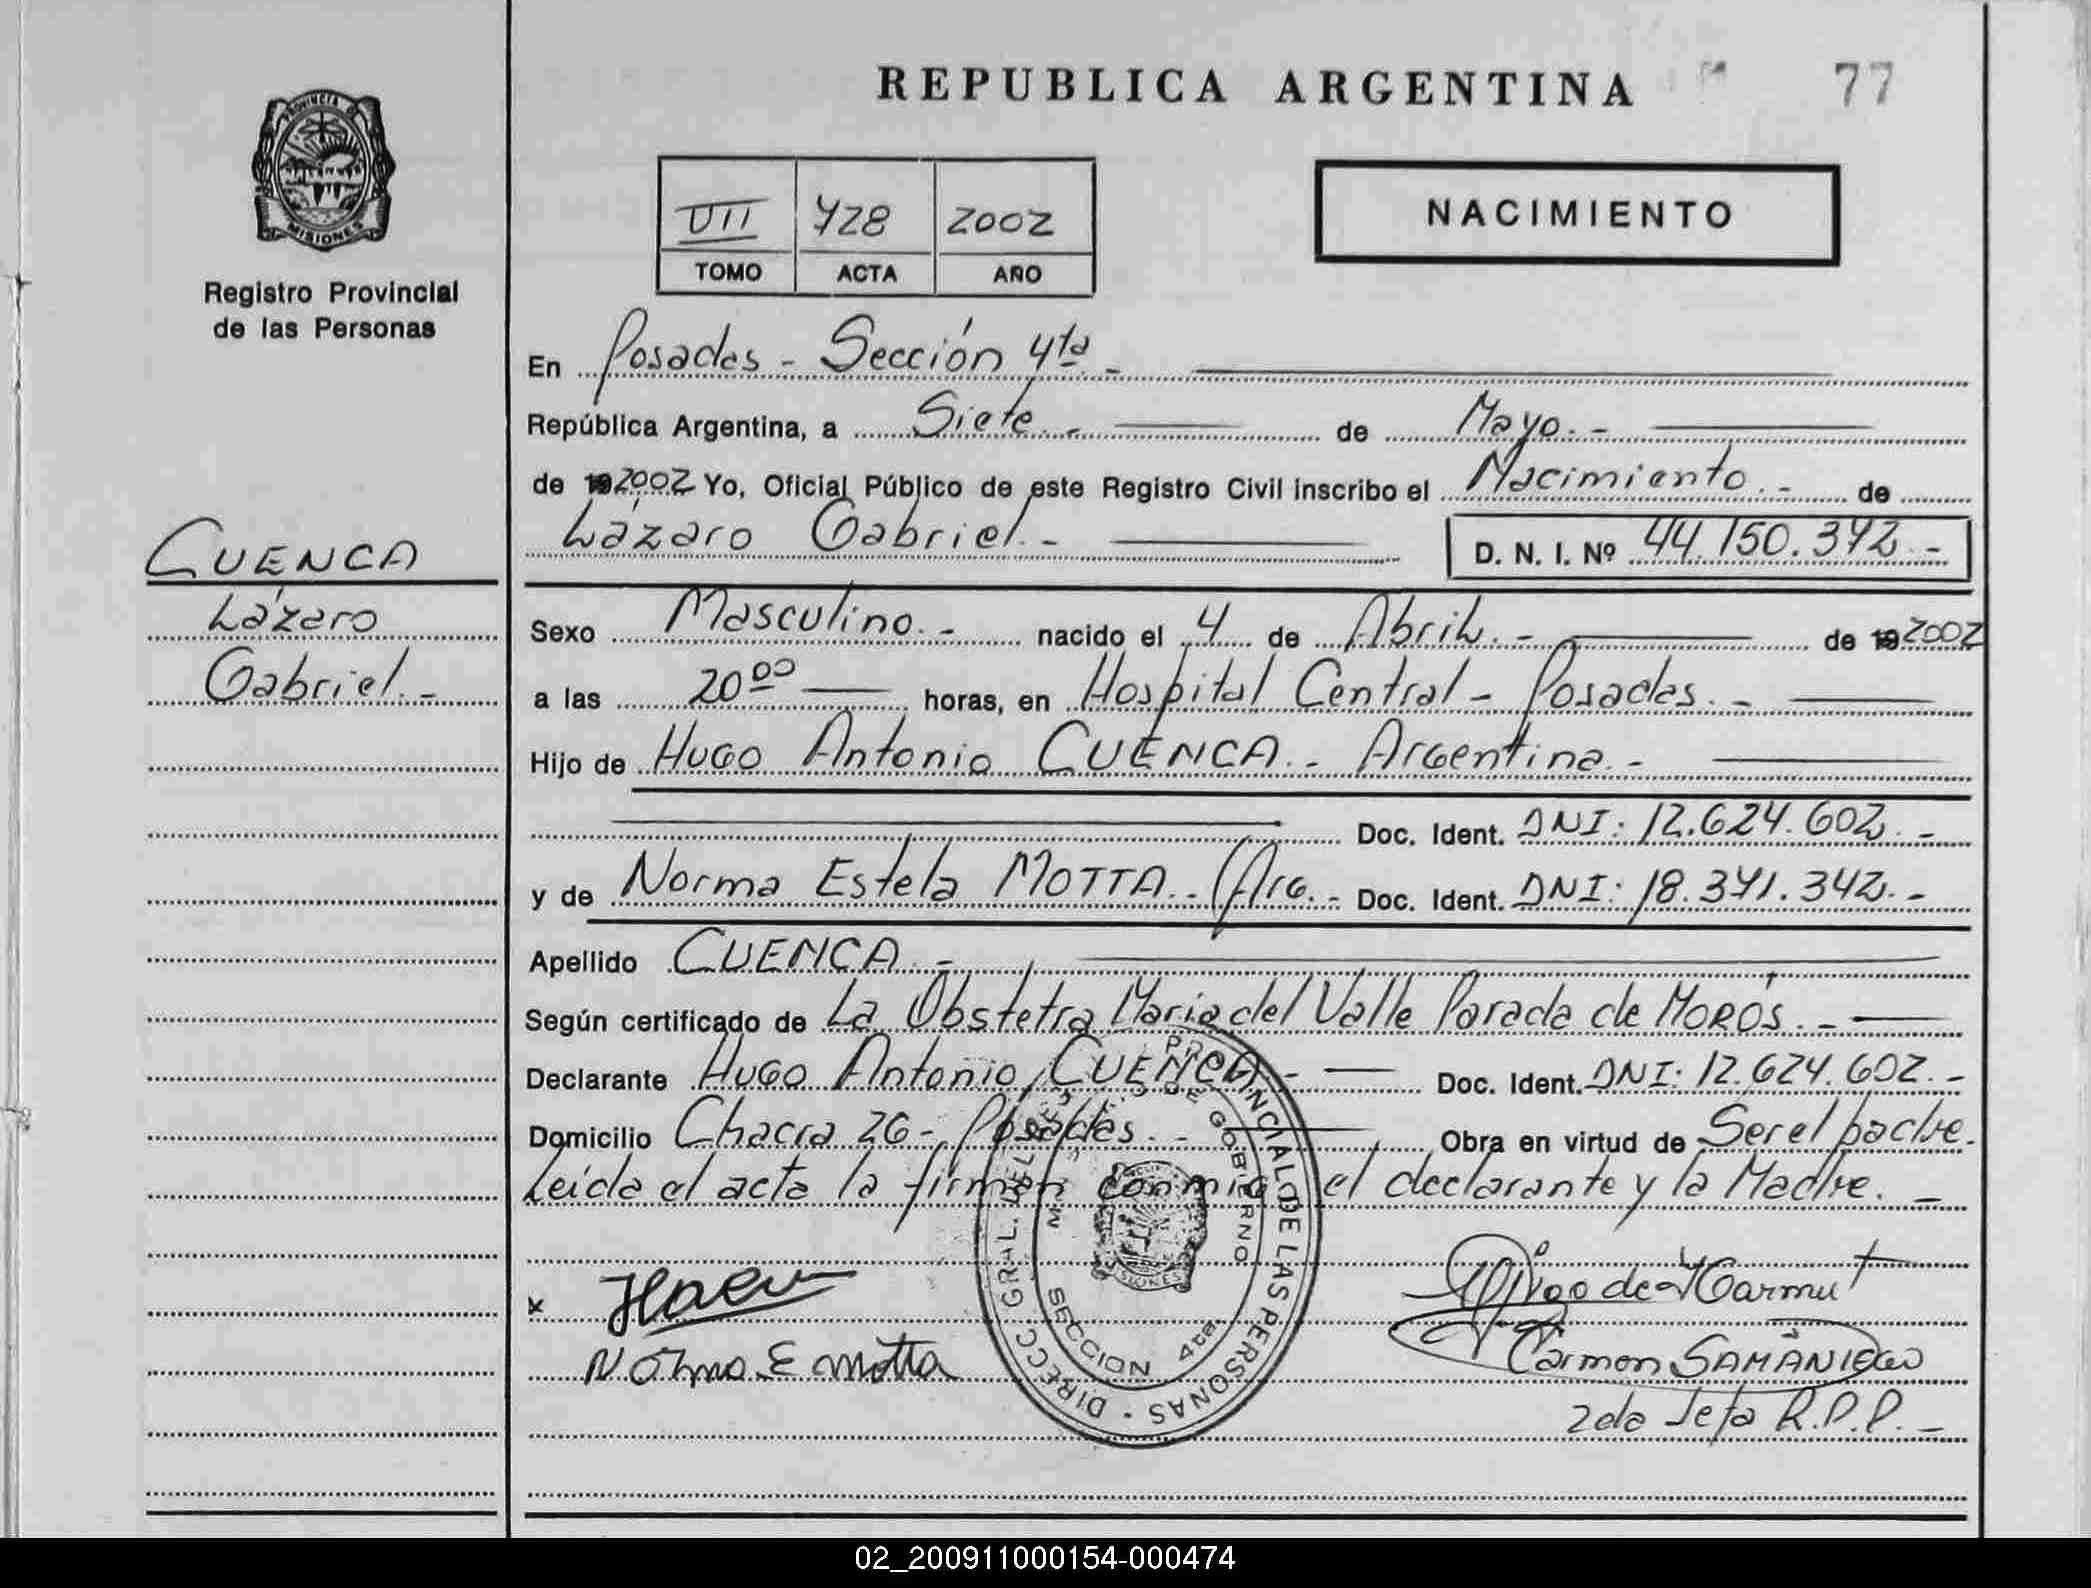 REPUBLICA ARGENTINA
77
PROVINCIA DE
MISIONES
Registro Provincial
de las Personas
VII 728 2002
TOMO ACTA AÑO
NACIMIENTO
En Posadas - Sección 4ta. -
República Argentina, a Siete. - de Mayo. -
de 19 2002 Yo, Oficial Público de este Registro Civil inscribo el Nacimiento. - de
Lázaro Gabriel. - D. N. I. Nº 44.150.372. -
CUENCA
Lázaro
Gabriel. -
Sexo Masculino. - nacido el 4 de Abril. - de 19 2002
a las 20 00 horas, en Hospital Central - Posadas. -
Hijo de HUGO Antonio CUENCA. - Argentina. -
Doc. Ident. DNI: 12.624.602. -
y de Norma Estela MOTTA. - (Arg. - Doc. Ident. DNI: 18.371.342. -
Apellido CUENCA. -
Según certificado de La Obstetra Maria del Valle Parada de MOROS. -
Declarante HUGO Antonio CUENCA - Doc. Ident. DNI: 12.624.602. -
Domicilio Chacra 26 - Posadas. - Obra en virtud de Ser el padre.
Leida el acta la firman conmigo el declarante y la Madre. -
DIRECC. GRAL. DEL REG. PROVINCIAL DE LAS PERSONAS
DE GOBIERNO
MISIONES
SECCION 4ta.
x
Norma E Motta
Carmen SAMANIEGO
2da Jefa R.P.P. -
02_200911000154-000474